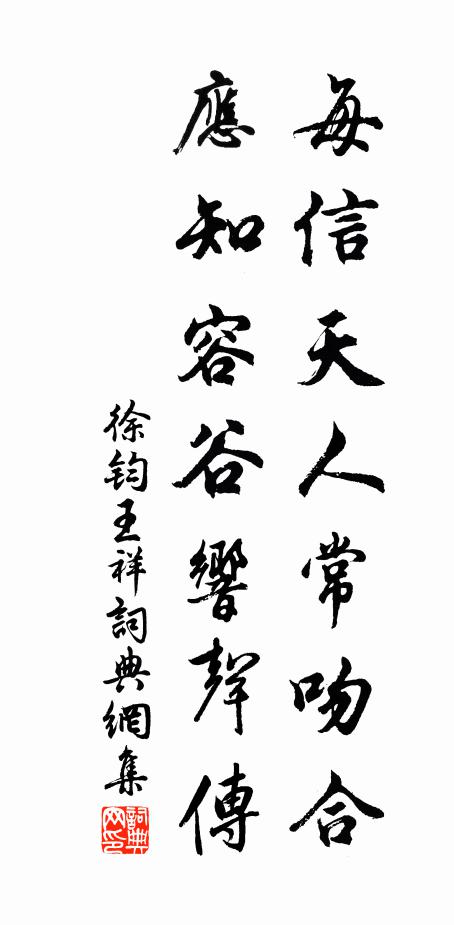 每信天人常吻合
應知容谷響聲傳
徐鈞王祥詞典網集
詞典网印